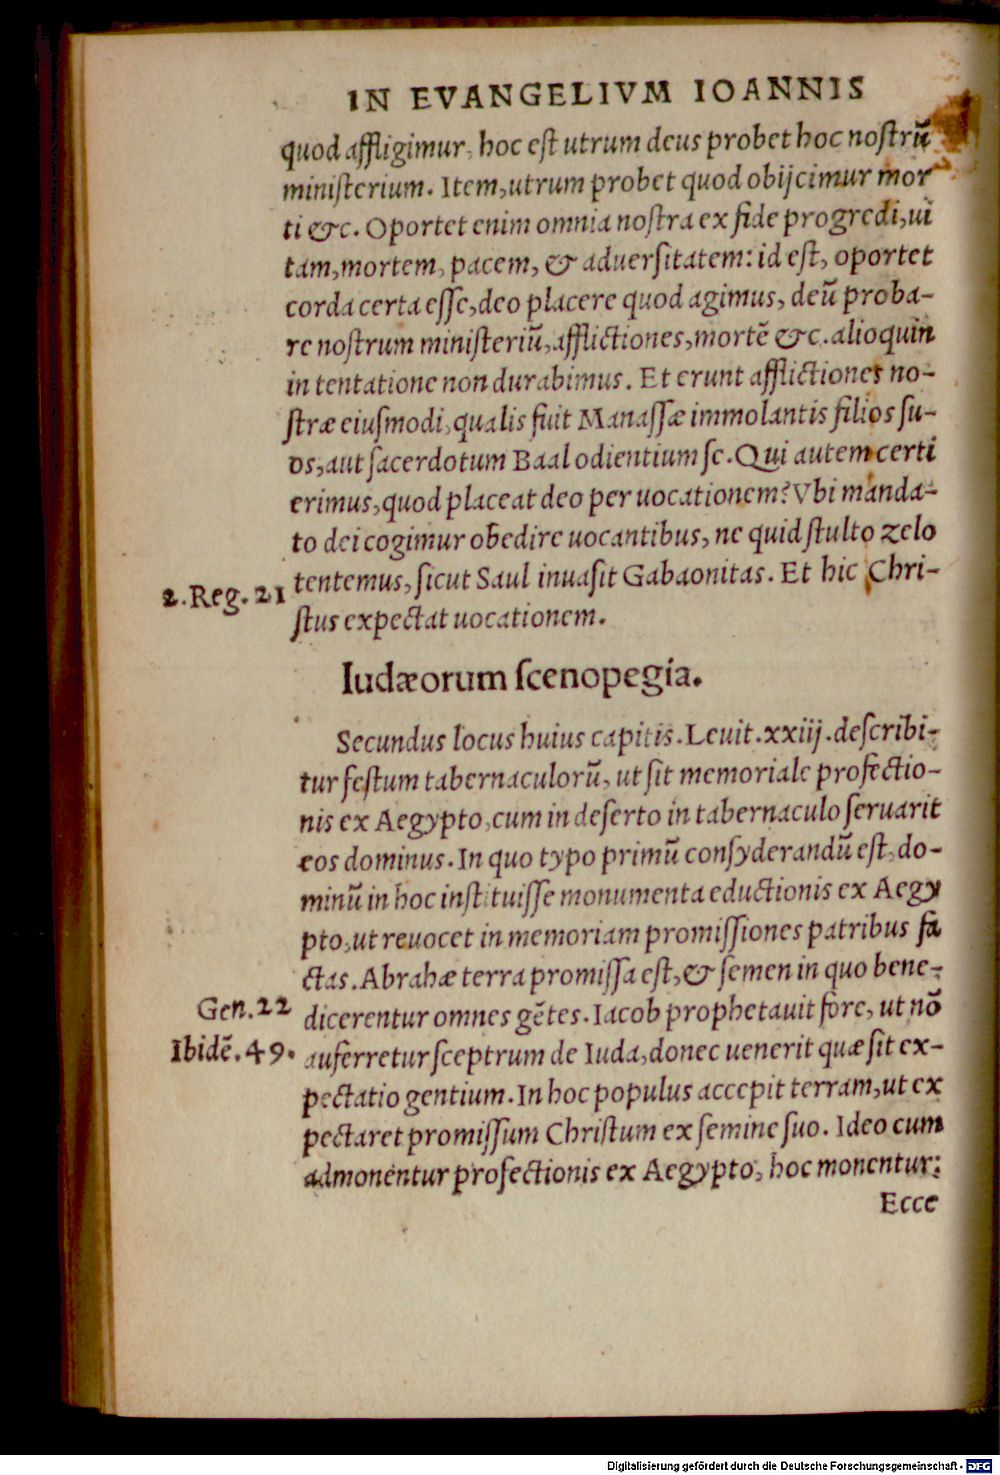 IN EVANGELIVM IOANNIS
quod affligimur, hoc est utrum deus probet hoc nostrũ
ministerium. Item, utrum probet quod obijcimur mor
ti &c. Oportet enim omnia nostra ex fide progredi, ui
tam, mortem, pacem, & aduersitatem: id est, oportet
corda certa esse, deo placere quod agimus, deũ proba-
re nostrum ministeriũ, afflictiones, mortẽ &c. alioquin
in tentatione non durabimus. Et erunt afflictiones no-
stræ eiusmodi, qualis fuit Manassæ immolantis filios su-
os, aut sacerdotum Baal odientium se. Qui autem certi
erimus, quod placeat deo per uocationem? Vbi manda-
to dei cogimur obedire uocantibus, ne quid stulto zelo
2. Reg. 21 tentemus, sicut Saul inuasit Gabaonitas. Et hic Chri-
stus expectat uocationem.
Iudæorum scenopegia.
Secundus locus huius capitis. Leuit. xxiij. describi-
tur festum tabernaculorũ, ut sit memoriale profectio-
nis ex Aegypto, cum in deserto in tabernaculo seruarit
eos dominus. In quo typo primũ consyderandũ est, do-
minũ in hoc instituisse monumenta eductionis ex Aegy
pto, ut reuocet in memoriam promissiones patribus fa
ctas. Abrahæ terra promissa est, & semen in quo bene-
Gen. 22 dicerentur omnes gẽtes. Iacob prophetauit fore, ut nõ
Ibidẽ. 49. auferretur sceptrum de Iuda, donec uenerit quæ sit ex-
pectatio gentium. In hoc populus accepit terram, ut ex
pectaret promissum Christum ex semine suo. Ideo cum
admonentur profectionis ex Aegypto, hoc monentur:
Ecce
Digitalisierung gefördert durch die Deutsche Forschungsgemeinschaft - DFG